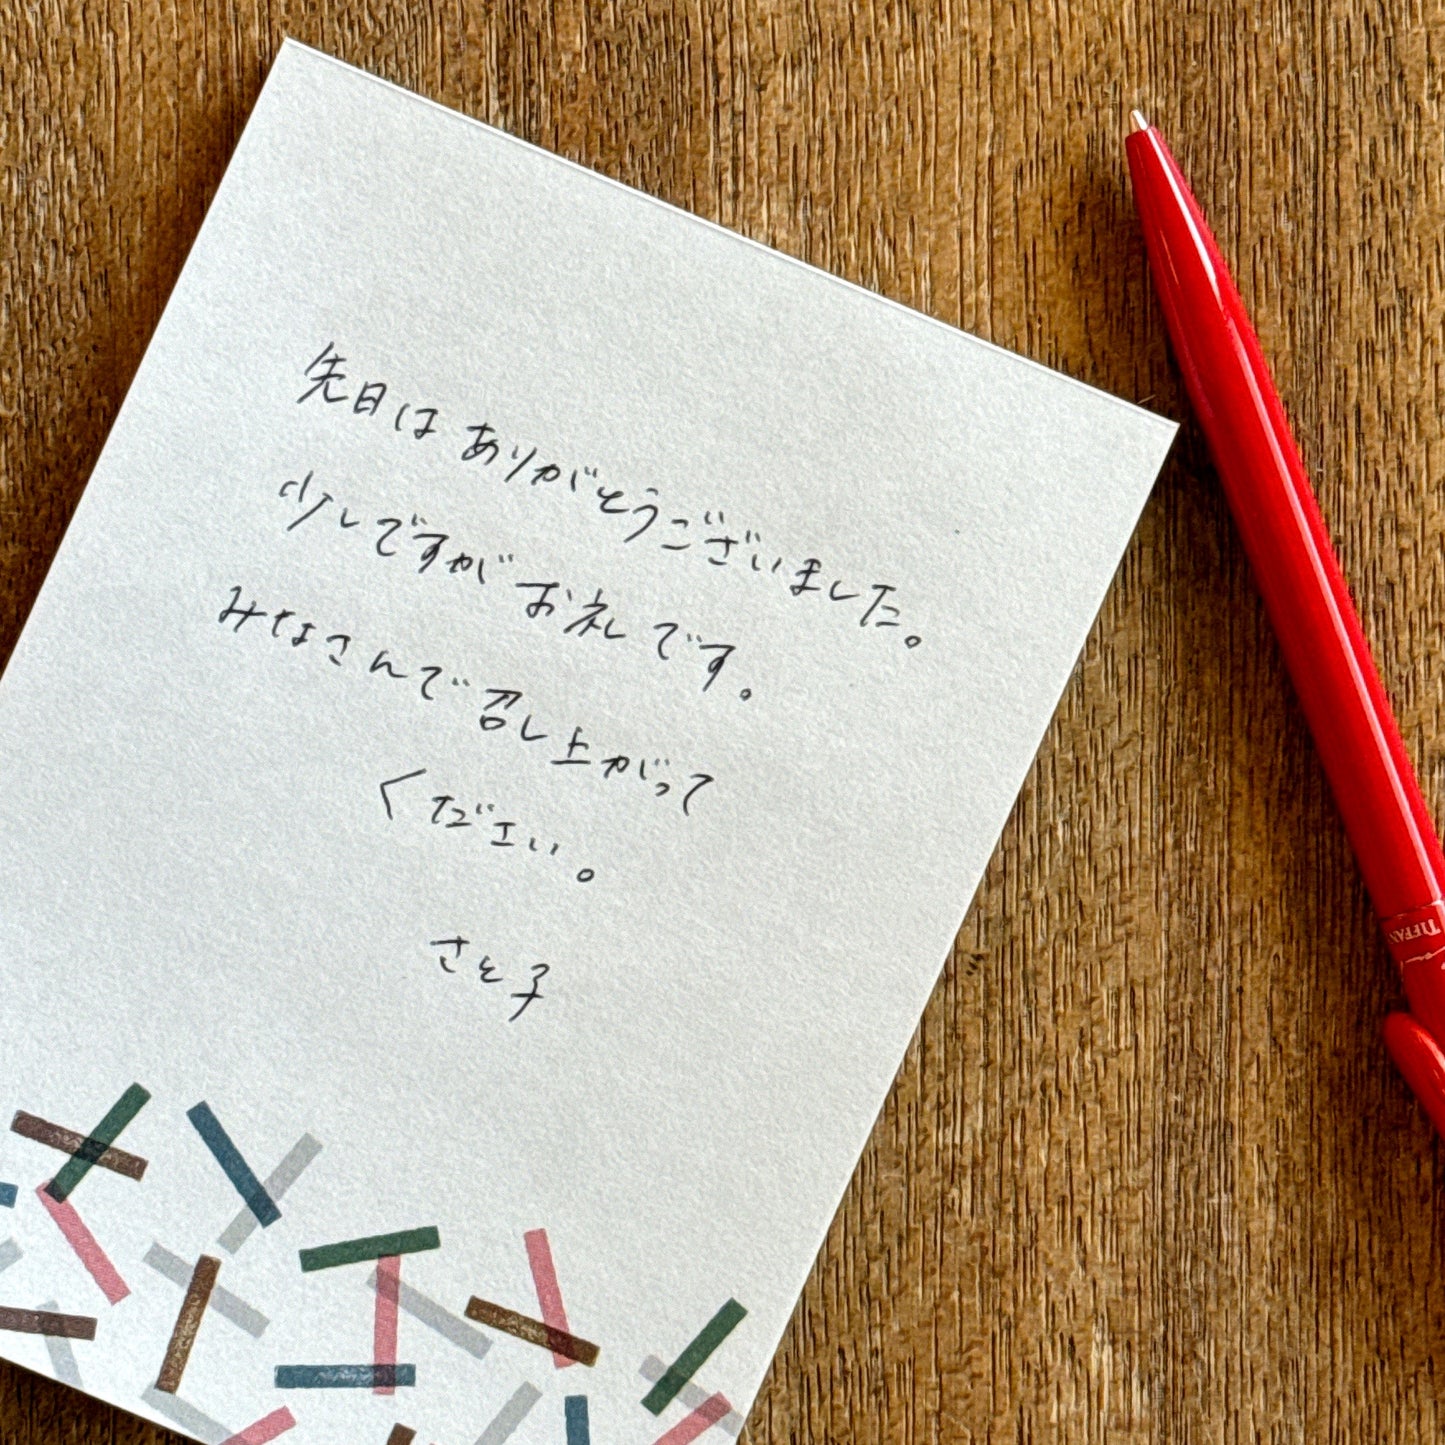 先日はありがとうございました。
少しですがお礼です。
みなさんで召し上がって
ください。
さと子